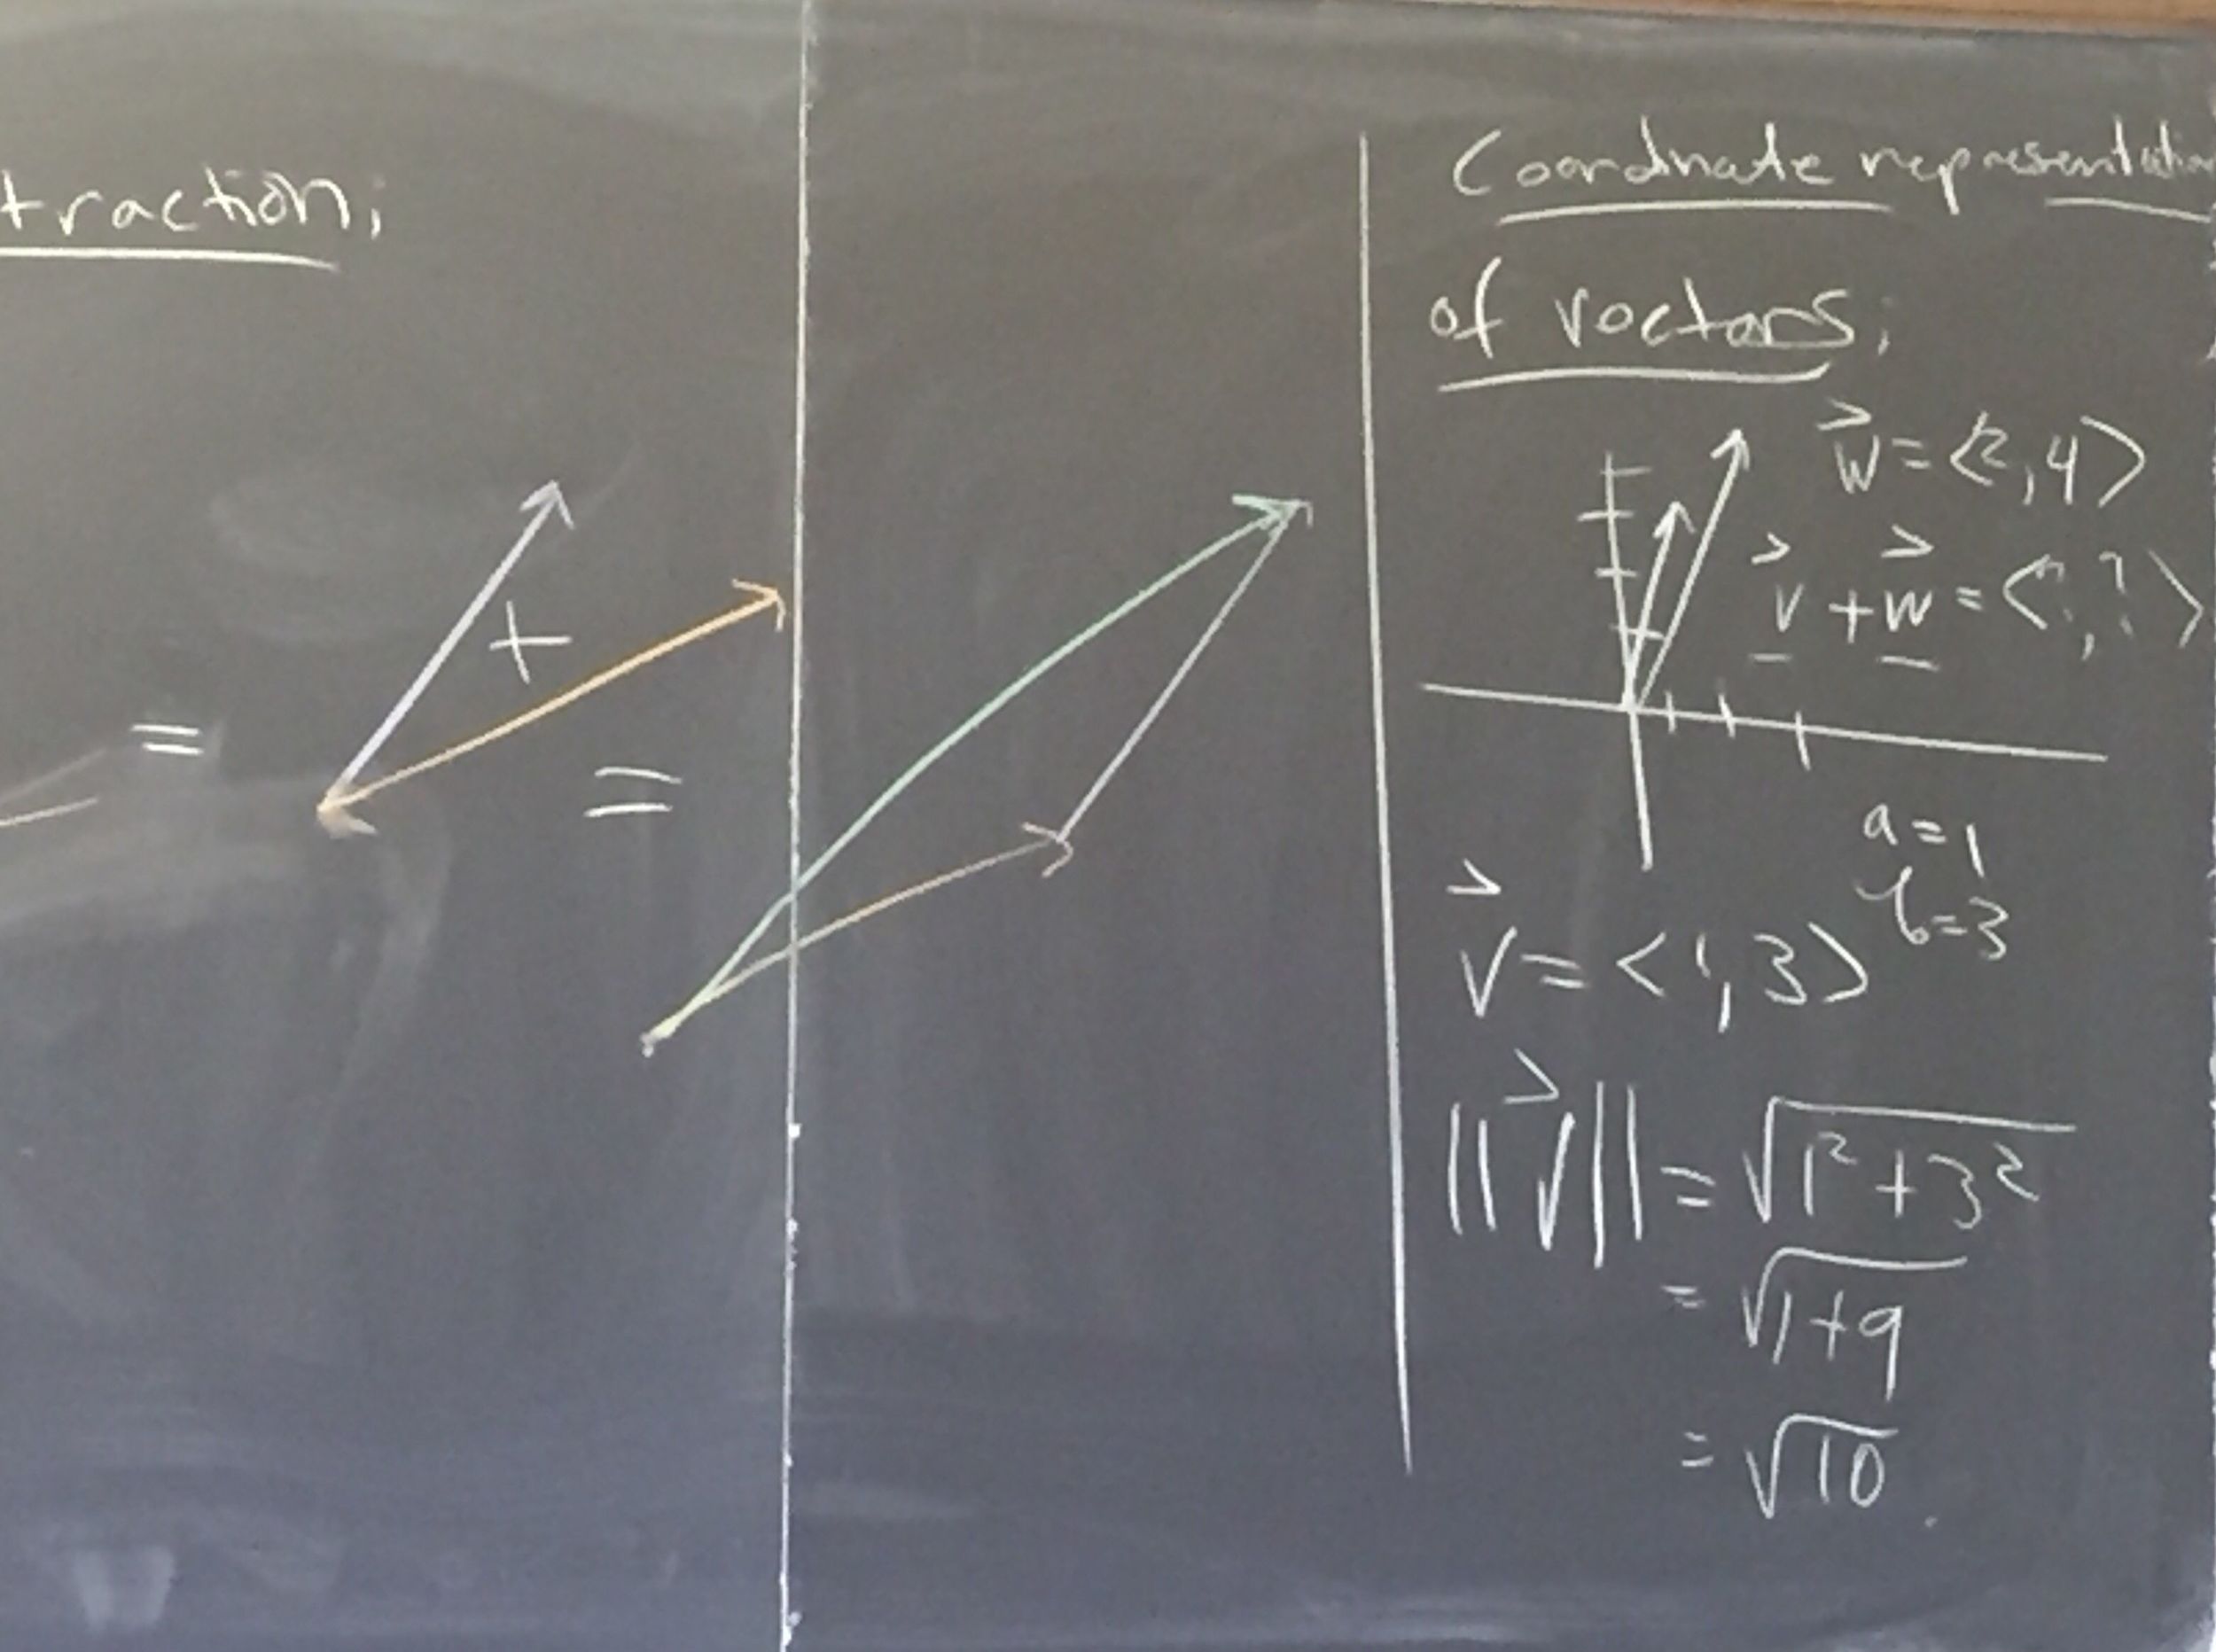 traction;
+
=
=
Coordinate representation
of vectors;
w = <2,4>
v + w = <?,?>
a = 1
b = 3
v = <1,3>
||v|| = √1² + 3²
= √1+9
= √10.